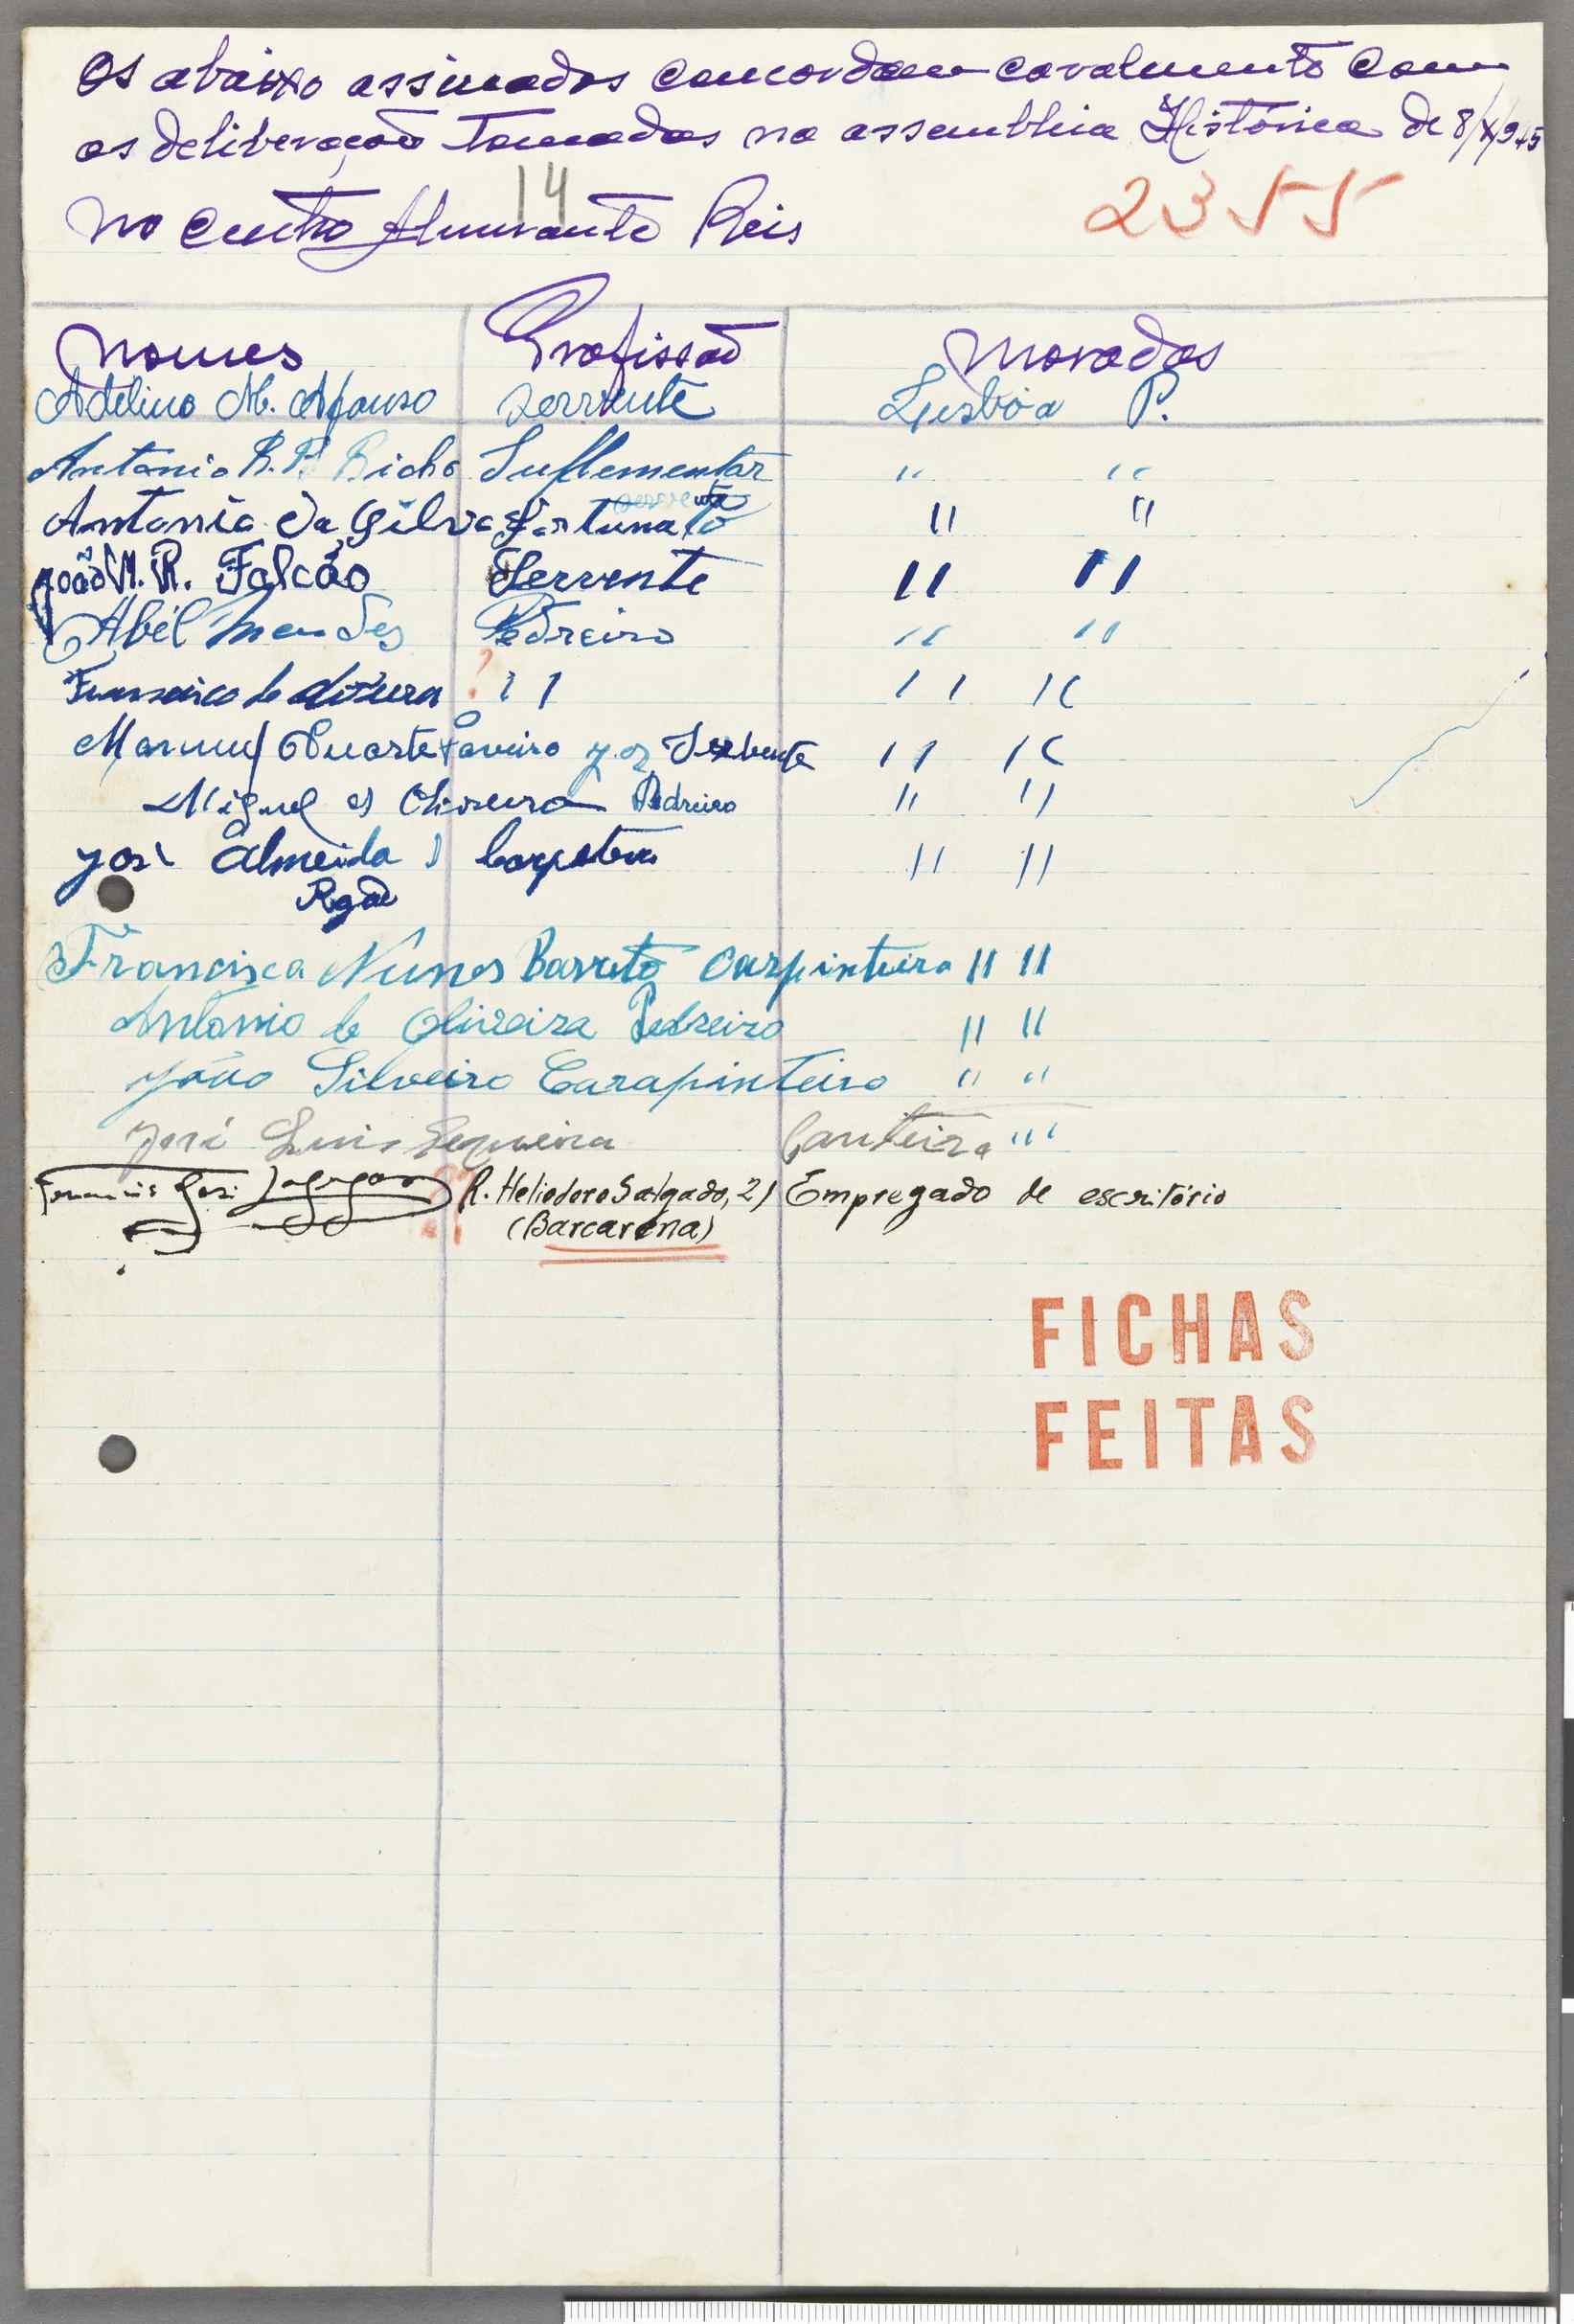 Os abaixo assinados concordam cavalmente com
as deliberação tomadas na assembleia Histórica de 8/X/945
14
no Centro Almirante Reis
2355
Nomes Profissão Moradas
Adelino M. Afonso Serrvente Lisbôa P.
Antonio R. P. Bicho Suflementar " "
servente
Antonio da Silva Fortunato " "
João M. R. Falcão Servente " "
Abél Mendes Pedreiro " "
Francisco de Moura ? " " "
Manuel Duarte Servente " "
Miguel Oliveira Pedreiro " "
José Almeida " "
Francisca Nunes Barreto Carpinteiro " "
António de Oliveira Pedreiro " "
João Silveiro Carapinteiro " "
José Luis Sequeira Canteiro " "
José R. Heliodoro Salgado, 21 Empregado de escritório
(Barcarena)
FICHAS
FEITAS